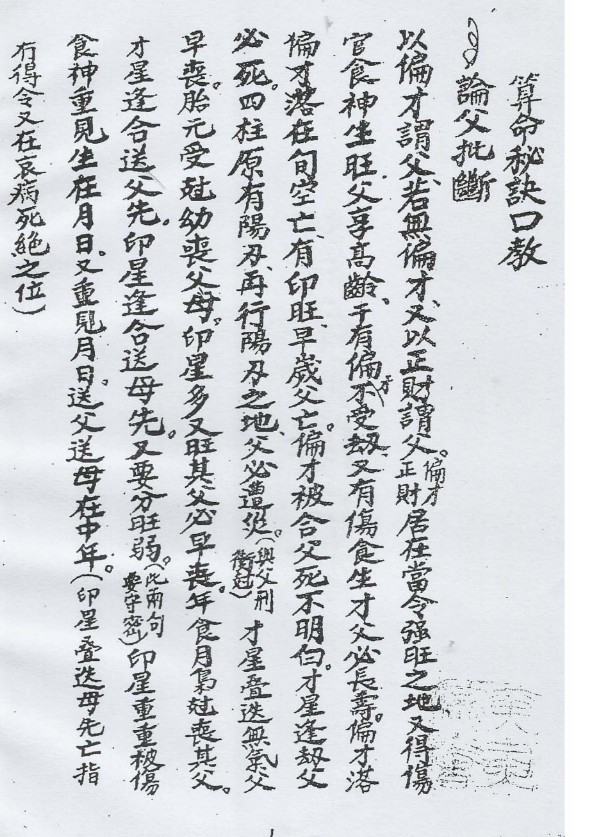 算命秘訣口教
論父批斷
以偏才謂父、若無偏才、又以正財謂父。偏才正財居在當令强旺之地、又得傷
官食神生旺、父享高齡、干有偏才不受刼、又有傷食生才父必長壽。偏才落
偏才落在旬空亡、有印旺、早歲父亡。偏才被合、父死不明白。才星逢刼父
必死。四柱原有陽刃、再行陽刃之地、父必遭災。（與父刑衝尅）才星疊迭無氣父
早喪。胎元受尅幼喪父母。印星多又旺其父必早喪。年食月梟尅喪其父。
才星逢合送父先。印星逢合送母先。又要分旺弱。（此兩句要守密）印星重重被傷
食神重見坐在月日。又重見月日。送父送母在中年。（印星疊迭母先亡指
冇得令又在衰病死絕之位）